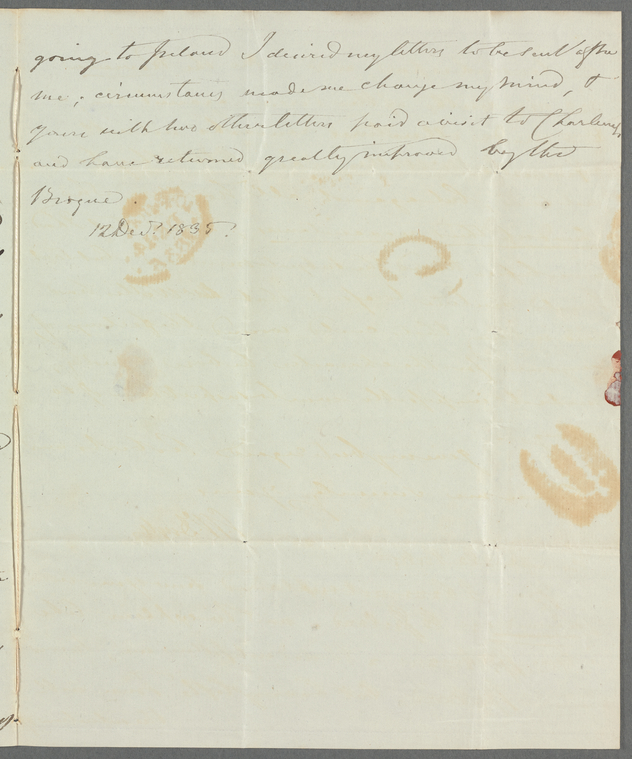 going to Ireland I desired my letters to be sent after
me; circumstances made me change my mind, &
yours with two other letters paid a visit to Charleville
and have returned greatly improved by the
Brogue.
12 Decr. 1835.